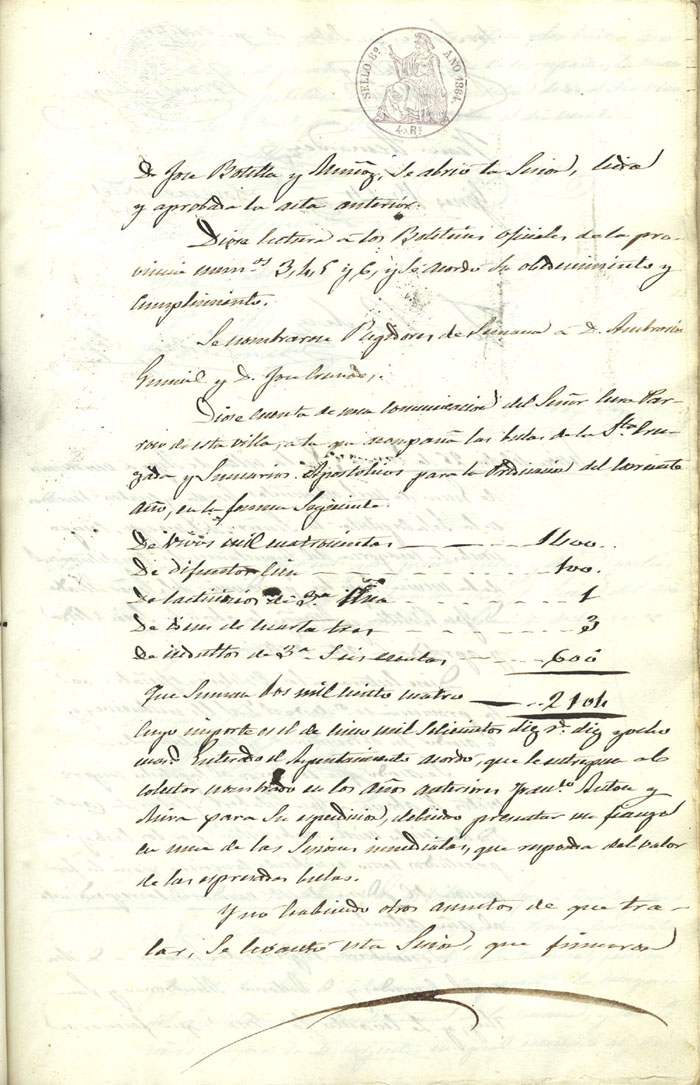 SELLO 8º AÑO 1864.
4 Rs
Dn Jose Botella y Muñoz, se abrió la Sesion, leida
y aprobada la acta anterior.
Diose lectura á los Boletines oficiales de la pro-
vincia numos 3, 4, 5 y 6, y se acordó su obedecimiento y
cumplimiento.
Se nombraron Pagadores de Semana á D. Ambrosio
y D. Jose
Diose cuenta de una comunicacion del Señor Cura Par-
roco de esta villa, á la que acompaña las bulas de la Sta Cru-
zada y Sumarios Apostolicos para la predicacion del corriente
año, en la forma siguiente.
De vivos mil cuatrocientas 1400.
De difuntos cien 100.
De lacticinios de 3a Una 1
De Idem de cuarta tres 3
De indultos de 3a Seiscientos 600
Que suman dos mil ciento cuatro 2104
Cuyo importe es el de cinco mil seiscientos diez rs diez y ocho
mars Enterado el Ayuntamiento acordó, que se entreguen al
colector nombrado en los años anteriores Franco Anton y
Mira para su espendicion, debiendo presentar un fiador
en una de las Sesiones inmediatas, que responda del valor
de las espresadas bulas.
Y no habiendo otros asuntos de que tra-
tar, se levantó esta Sesion, que firmaron